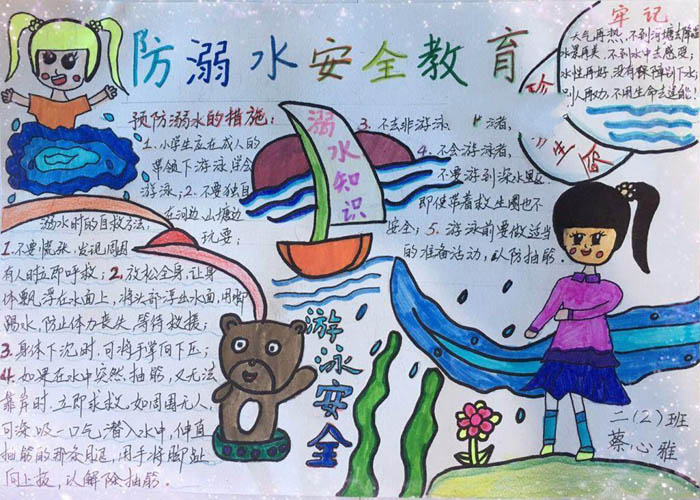 防溺水安全教育
牢记
天气再热，不到河塘去降温
水果再美，不到水中去感受；
水性再好，没有保障别下去；
别人再劝，不用生命去逞能！
珍
命
预防溺水的措施：
1.小学生应在成人的
带领下游泳学会
游泳；2.不要独自
在河边、山塘边
玩耍；
溺水知识
3.不去非游泳
4.不会游泳者，
不要游到深水区
即使带着救生圈也不
安全；5.游泳前要做适当
的准备活动，以防抽筋。
溺水时的自救方法：
1.不要慌张，发现周围
有人时立即呼救；2.放松全身，让身
体飘浮在水面上，将头部浮出水面，用脚
踢水，防止体力丧失，等待救援；
3.身体下沉时，可将手掌向下压；
4.如果在水中突然抽筋，又无法
靠岸时，立即求救。如周围无人，
可深吸一口气潜入水中，伸直
抽筋的那条腿，用手将脚趾
向上扳，以解除抽筋。
游泳安全
二（2）班
蔡心雅